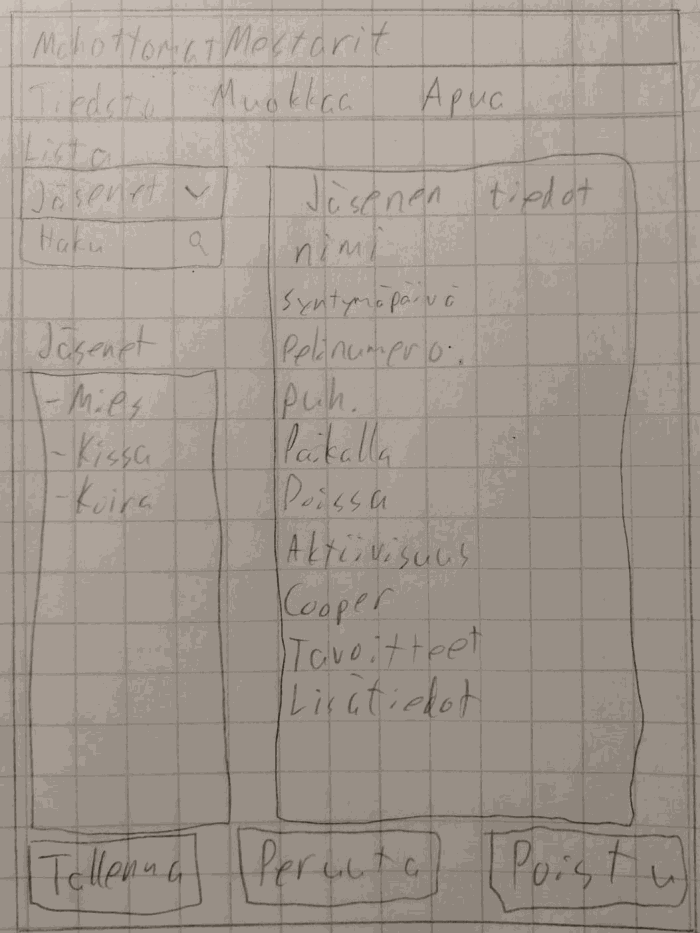 Mahottomat Mestarit
Tiedsto Muokkaa Apua
Lista
Jäsenet
Haku
Jäsenet
- Mies
- Kissa
- Koira
Jäsenen tiedot
nimi
syntymäpäivä
Pelinumero.
puh.
Paikalla
Poissa
Aktiivisuus
Cooper
Tavoitteet
Lisätiedot
Tallenna Peruuta Poistu